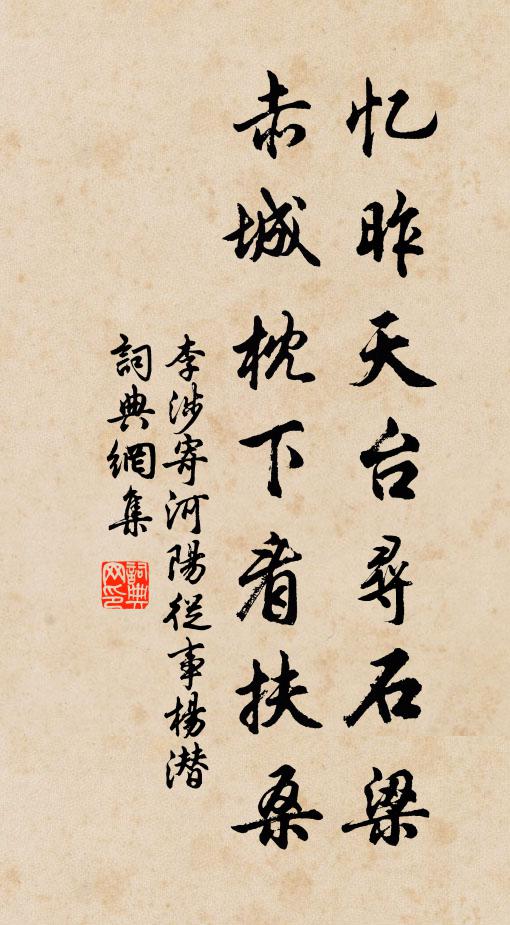 忆昨天台尋石梁
赤城枕下看扶桑
李涉寄河陽從事楊潜
詞典網集
詞典网印